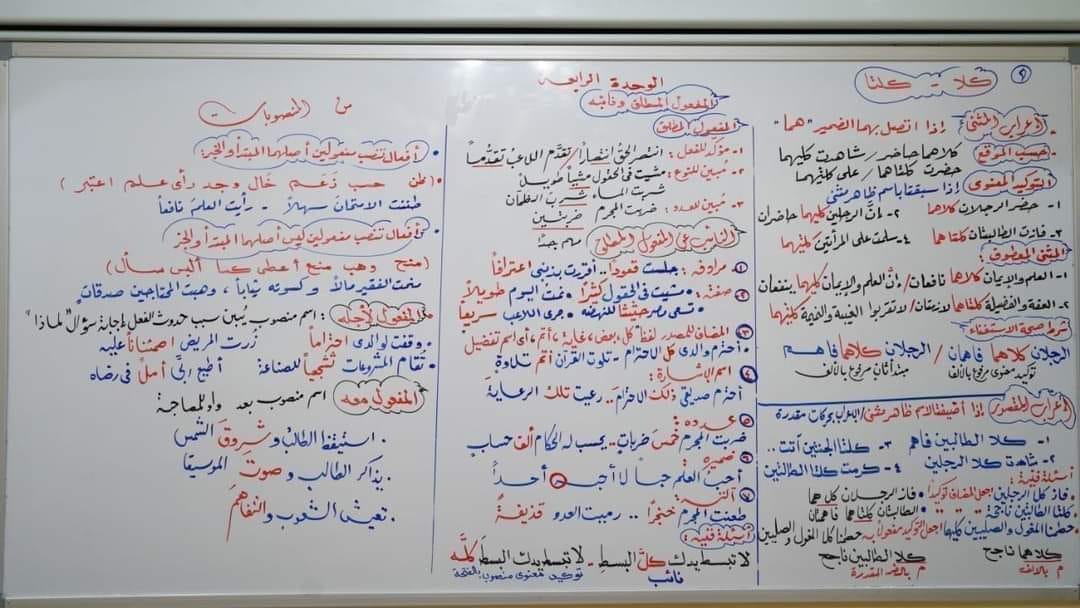 ٩
كلا - كلتا
إعراب المثنى إذا اتصل بهما الضمير "هما"
حسب الموقع كلاهما حاضر / شاهدت كليهما
حضرت كلتاهما / على كلتيهما
التوكيد المعنوى إذا سبقتا باسم ظاهر مثنى
١- حضر الرجلان كلاهما ٢- إن الرجلين كليهما حاضران
٣- فازت الطالبتان كلتاهما ٤- سلمت على المرأتين كلتيهما
المثنى المعطوف:
١- العلم والإيمان كلاهما نافعان / إن العلم والإيمان كليهما ينفعان
٢- العفة والفضيلة كلتاهما لازمتان / لا تقربوا الغيبة والنميمة كلتيهما
شرط صحة الاستغناء
الرجلان كلاهما فاهمان / الرجلان كلاهما فاهم
توكيد معنوى مرفوع بالألف مبتدأ ثان مرفوع بالألف
إعراب المقصور إذا أضيفتا لاسم ظاهر مثنى / الإعراب بحركات مقدرة
١- كلا الطالبين فاهم ٣- كلتا الجنتين آتت ..
٢- شاهدت كلا الرجلين ٤- كرمت كلتا الطالبتين
أسئلة فنية:
فاز كلا الرجلين اجعل المضاف توكيداً • فاز الرجلان كلاهما
• كلتا الطالبتين ناجحة • الطالبتان كلتاهما فاهمتان
• حطمنا المغول والصليبيين كليهما اجعل التوكيد مفعولاً به حطمنا كلا المغول والصليبيين
كلاهما ناجح كلا الطالبين ناجح
م بالألف م بالضمة المقدرة
الوحدة الرابعة
المفعول المطلق ونائبه
المفعول المطلق
١- مؤكد للفعل: انتصر الحق انتصاراً / تقدم اللاعب تقدماً
٢- مبين للنوع: مشيت فى الحقول مشياً طويلاً
شربت الماء شرب الظمآن
٣- مبين للعدد: ضربت المجرم ضربتين
النائب عن المفعول المطلق مهم جداً
١ مرادفه: جلست قعوداً .. أقررت بذنبى اعترافاً
٢ صفته: • مشيت فى الحقول كثيراً • نمت اليوم طويلاً
• تسعى مصر حثيثاً للنهضة • جرى اللاعب سريعاً
٣ المضاف للمصدر لفظ كل، بعض، غاية، أتم، أى اسم تفضيل
• أحترم والدى كل الاحترام - تلوت القرآن أتم تلاوة
٤ اسم الإشارة:
أحترم صديقى ذلك الاحترام .. رعيت تلك الرعاية
٥ عدده:
ضربت المجرم خمس ضربات .. يحسب له الحكام ألف حساب
٦ ضميره
أحب العلم حباً لا أحبه أحداً
٧ آلته:
طعنت المجرم خنجراً .. رميت العدو قذيفة
أسئلة فنية:
لا تبسط يدك كل البسط - لا تبسط يدك البسط كله
نائب توكيد معنوى منصوب بالفتحة
من المنصوبات
• أفعال تنصب مفعولين أصلهما المبتدأ والخبر:
(ظن حسب زعم خال وجد رأى علم اعتبر)
ظننت الامتحان سهلاً - رأيت العلم نافعاً
• أفعال تنصب مفعولين ليس أصلهما المبتدأ والخبر
(منح وهب منع أعطى كسا ألبس سأل)
منحت الفقير مالاً وكسوته ثياباً، وهبت المحتاجين صدقات
• المفعول لأجله: اسم منصوب يبين سبب حدوث الفعل إجابة سؤال "لماذا"
• وقفت لوالدى احتراماً زرت المريض اطمئناناً عليه
• تقام المشروعات تشجيعاً للصناعة أطيع أبى أملاً فى رضاه
• المفعول معه اسم منصوب بعد واو المصاحبة
• استيقظ الطالب وشروق الشمس
• يذاكر الطالب وصوت الموسيقا
• تعيش الشعوب والتفاهم